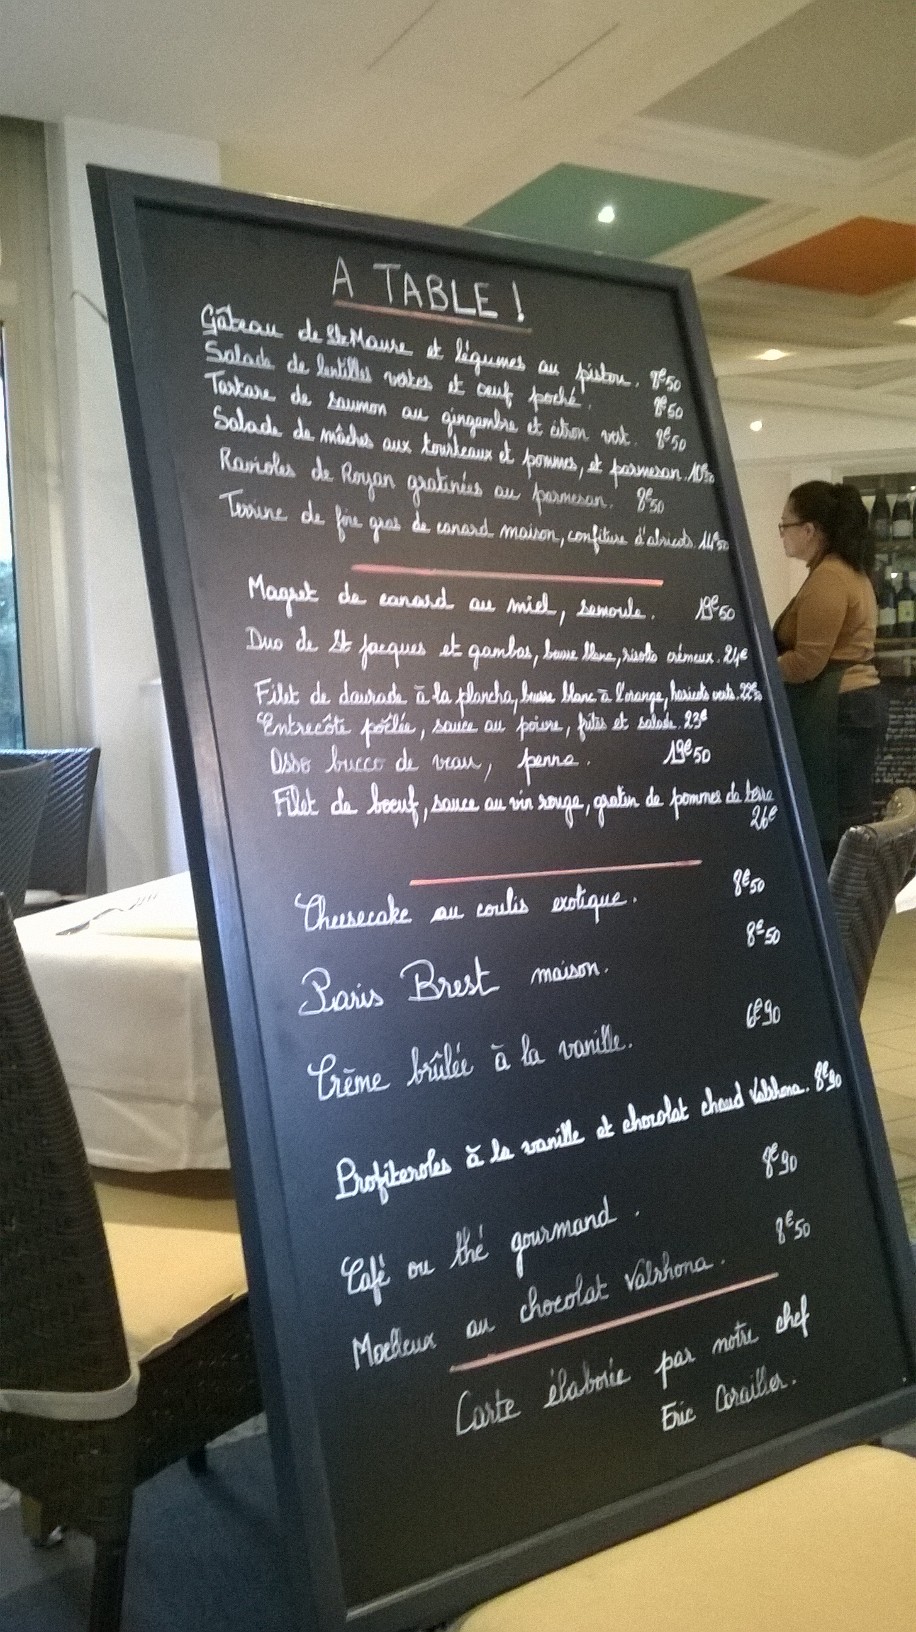 A TABLE !
Gâteau de St Maure et légumes au pistou. 8€50
Salade de lentilles vertes et oeuf poché. 8€50
Tartare de saumon au gingembre et citron vert. 8€50
Salade de mâches aux tourteaux et pommes, et parmesan. 10€50
Ravioles de Royan gratinées au parmesan. 8€50
Terrine de foie gras de canard maison, confiture d'abricots. 14€50
Magret de canard au miel, semoule. 19€50
Duo de St Jacques et gambas, beurre blanc, risotto crémeux. 24€
Filet de daurade à la plancha, beurre blanc à l'orange, haricots verts.
Entrecôte poêlée, sauce au poivre, frites et salade. 23€
Osso bucco de veau, penne. 19€50
Filet de boeuf, sauce au vin rouge, gratin de pommes de terre
26€
Cheesecake au coulis exotique. 8€50
Paris Brest maison. 8€50
Crème brûlée à la vanille. 6€90
Profiteroles à la vanille et chocolat chaud Valrhona. 8€90
Café ou thé gourmand. 8€90
Moelleux au chocolat Valrhona. 8€50
Carte élaborée par notre chef
Eric